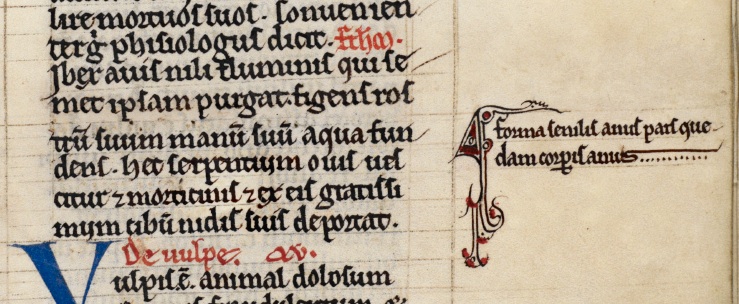 lire mortuos suos. Conuenien
terg̃ phisiologus dicit.
Iber auis nili fluminis qui se
met ipsam purgat. figens ros
trũ suum manũ suũ aqua fun
dens. hec serpentium ouis ues
citur ⁊ morticinis ⁊ ex eis gratissi
mum cibũ nidis suis deportat.
De uulpe. xv.
Vulpis ẽ. animal dolosum
fraudulentum
A forma senilis anus pars que
dam corꝑis anus